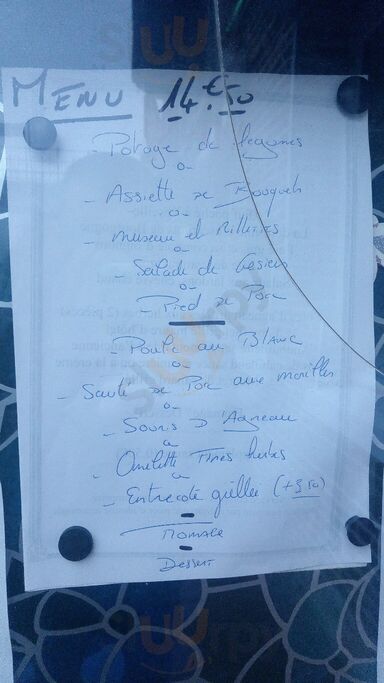 MENU 14€50
- Potage de légumes
o-
- Assiette de Bouquets
o-
- Museau et Rillettes
o-
- Salade de Gésiers
o-
- Pied de Porc
- Poule au Blanc
o-
- Sauté de Porc aux morilles
o-
- Souris D'Agneau
o-
- Omelette Fines herbes
o-
- Entrecôte grillée (+3.50)
FROMAGE
Dessert